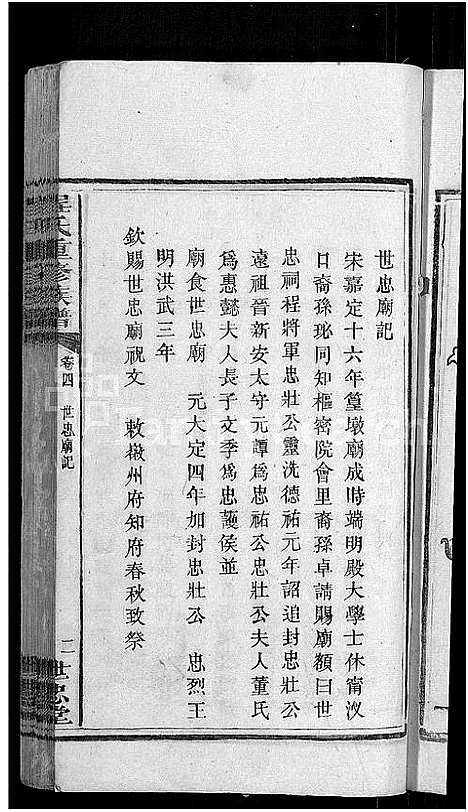 世忠廟記
宋嘉定十六年篁墩廟成時端明殿大學士休甯汊
口裔孫珌同知樞密院會里裔孫卓請賜廟額曰世
忠祠程將軍忠壯公靈洗德祐元年詔追封忠壯公
遠祖晉新安太守元譚為忠祐公忠壯公夫人董氏
為惠懿夫人長子文季為忠護侯並
廟食世忠廟　元大定四年加封忠壯公　忠烈王
明洪武三年
欽賜世忠廟祝文　敕徽州府知府春秋致祭
程氏重修族譜
卷四　世忠廟記
二
世忠堂